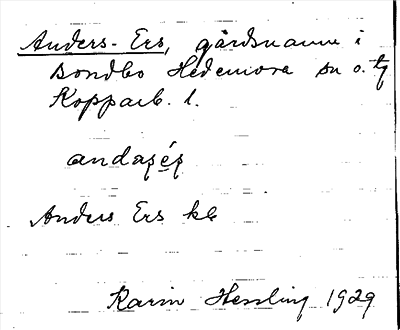 Anders-Ers, gårdsnamn i
Bondbo Hedemora sn o. tg
Kopparb. l.
andaṣéṣ
Anders Ers kb
Karin Hessling 1929